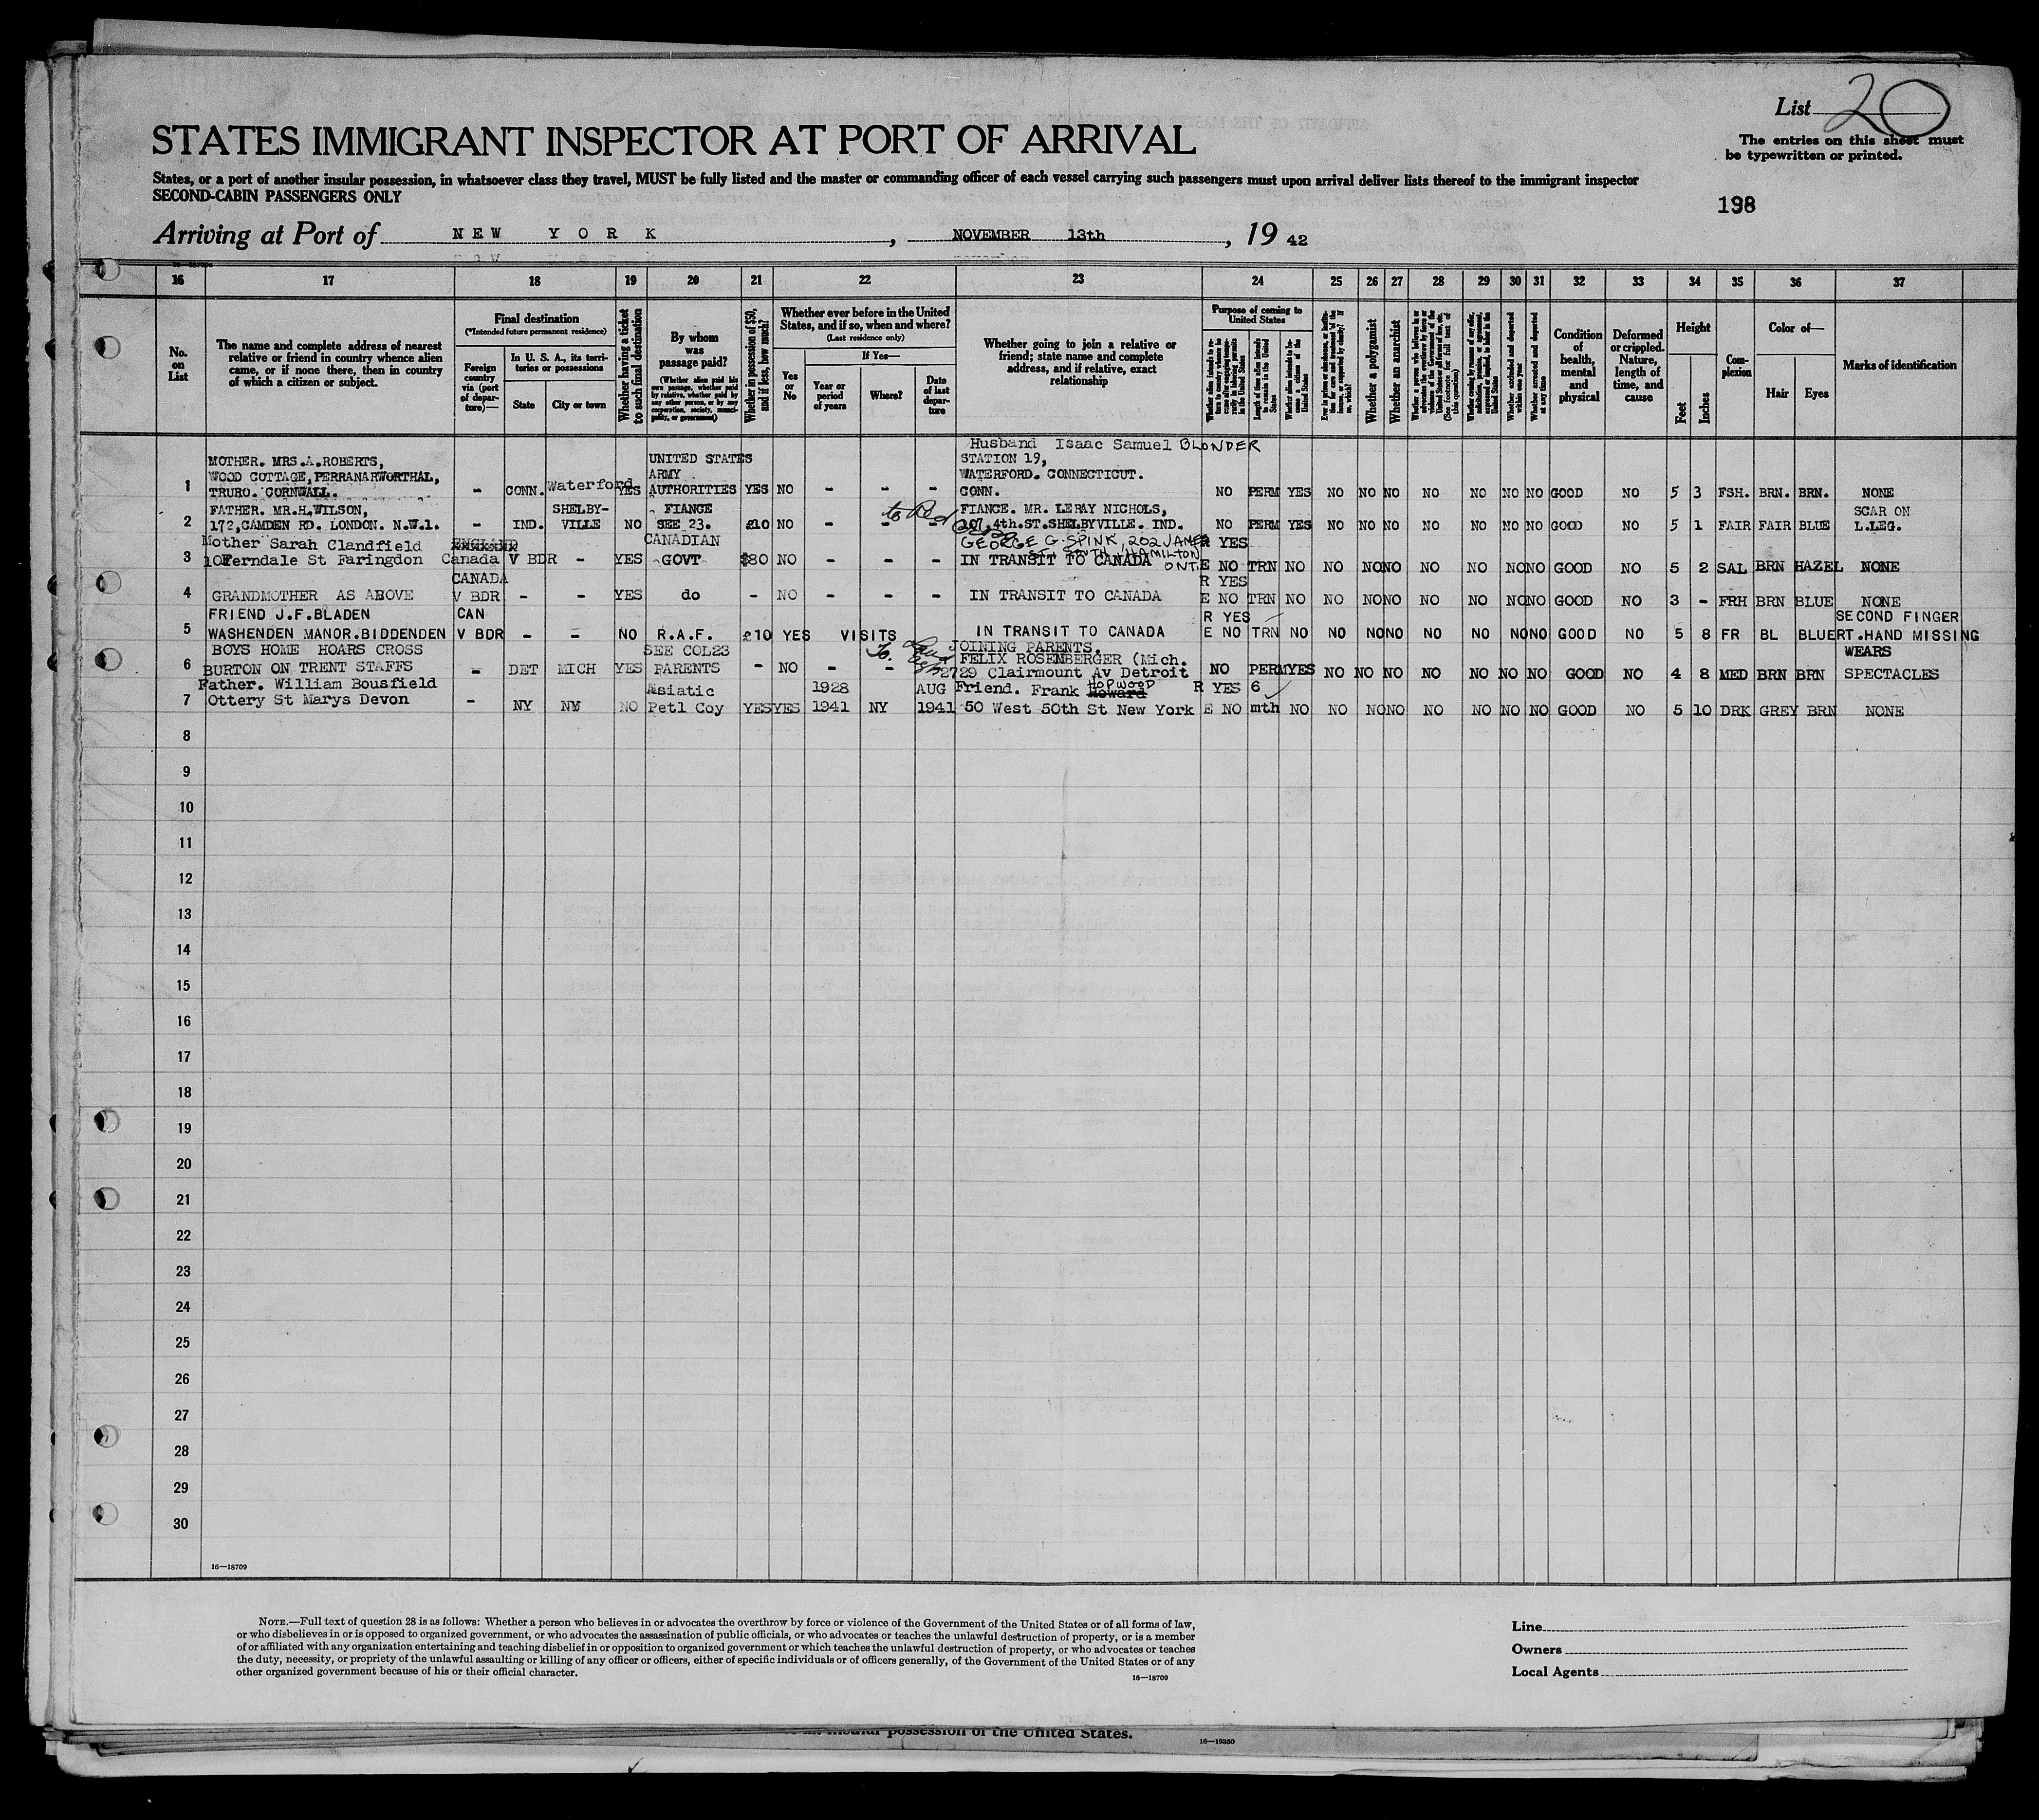 List 20
STATES IMMIGRANT INSPECTOR AT PORT OF ARRIVAL
The entries on this sheet must
be typewritten or printed.
States, or a port of another insular possession, in whatsoever class they travel, MUST be fully listed and the master or commanding officer of each vessel carrying such passengers must upon arrival deliver lists thereof to the immigrant inspector
SECOND-CABIN PASSENGERS ONLY
198
Arriving at Port of NEW YORK, NOVEMBER 13th, 19 42
16 17 18 19 20 21 22 23 24 25 26 27 28 29 30 31 32 33 34 35 36 37
No. on List
The name and complete address of nearest relative or friend in country whence alien came, or if none there, then in country of which a citizen or subject.
Final destination
(*Intended future permanent residence)
Foreign country via (port of departure)—
In U. S. A., its territories or possessions
State
City or town
Whether having a ticket to such final destination
By whom was passage paid?
(Whether alien paid his own passage, whether paid by relative, whether paid by any other person, or by any corporation, society, municipality, or government)
Whether in possession of $50, and if less, how much?
Whether ever before in the United States, and if so, when and where?
(Last residence only)
Yes or No
If Yes—
Year or period of years
Where?
Date of last departure
Whether going to join a relative or friend; state name and complete address, and if relative, exact relationship
Purpose of coming to United States
Length of time alien intends to remain in the United States
Whether alien intends to become a citizen of the United States
Whether a polygamist
Whether an anarchist
Whether excluded and deported within one year
Whether arrested and deported at any time
Condition of health, mental and physical
Deformed or crippled. Nature, length of time, and cause
Height
Feet
Inches
Complexion
Color of—
Hair
Eyes
Marks of identification
Husband Isaac Samuel BLONDER
MOTHER. MRS.A.ROBERTS, UNITED STATES STATION 19,
WOOD COTTAGE,PERRANARWORTHAL, ARMY WATERFORD. CONNECTICUT.
1 TRURO. CORNWALL. - CONN. Waterford YES AUTHORITIES YES NO - - - CONN. NO PERM YES NO NO NO NO NO NO NO GOOD NO 5 3 FSH. BRN. BRN. NONE
FATHER. MR.H.WILSON, SHELBY- FIANCE FIANCE. MR. LERAY NICHOLS, SCAR ON
2 172,CAMDEN RD. LONDON. N.W.1. - IND. VILLE NO SEE 23. £10 NO - - - 107,4th.ST.SHELBYVILLE. IND. NO PERM YES NO NO NO NO NO NO NO GOOD NO 5 1 FAIR FAIR BLUE L.LEG.
Mother Sarah Clandfield ENGLAND CANADIAN GEORGE G. SPINK, 202 JAMES ST. SOUTH, HAMILTON ONT. R YES
3 10Ferndale St Faringdon Canada V BDR - YES GOVT $80 NO - - - IN TRANSIT TO CANADA E NO TRN NO NO NO NO NO NO NO NO GOOD NO 5 2 SAL BRN HAZEL NONE
CANADA R YES
4 GRANDMOTHER AS ABOVE V BDR - - YES do - NO - - - IN TRANSIT TO CANADA E NO TRN NO NO NO NO NO NO NO NO GOOD NO 3 - FRH BRN BLUE NONE
FRIEND J.F.BLADEN CAN R YES SECOND FINGER
5 WASHENDEN MANOR.BIDDENDEN V BDR - - NO R.A.F. £10 YES VISITS IN TRANSIT TO CANADA E NO TRN NO NO NO NO NO NO NO NO GOOD NO 5 8 FR BL BLUE RT.HAND MISSING
BOYS HOME HOARS CROSS SEE COL23 JOINING PARENTS, WEARS
FELIX ROSENBERGER (Mich.
6 BURTON ON TRENT STAFFS - DET MICH YES PARENTS - NO - - - 2729 Clairmount Av Detroit NO PERM YES NO NO NO NO NO NO NO GOOD NO 4 8 MED BRN BRN SPECTACLES
Father. William Bousfield Asiatic 1928 AUG Friend. Frank Howard HOPWOOD R YES 6
7 Ottery St Marys Devon - NY NY NO Petl Coy YES YES 1941 NY 1941 50 West 50th St New York E NO mth NO NO NO NO NO NO NO NO GOOD NO 5 10 DRK GREY BRN NONE
8
9
10
11
12
13
14
15
16
17
18
19
20
21
22
23
24
25
26
27
28
29
30
16—18709
NOTE.—Full text of question 28 is as follows: Whether a person who believes in or advocates the overthrow by force or violence of the Government of the United States or of all forms of law,
or who disbelieves in or is opposed to organized government, or who advocates the assassination of public officials, or who advocates or teaches the unlawful destruction of property, or is a member
of or affiliated with any organization entertaining and teaching disbelief in or opposition to organized government or which teaches the unlawful destruction of property, or who advocates or teaches
the duty, necessity, or propriety of the unlawful assaulting or killing of any officer or officers, either of specific individuals or of officers generally, of the Government of the United States or of any
other organized government because of his or their official character.
16—18709
Line
Owners
Local Agents
possession of the United States.
16—19350